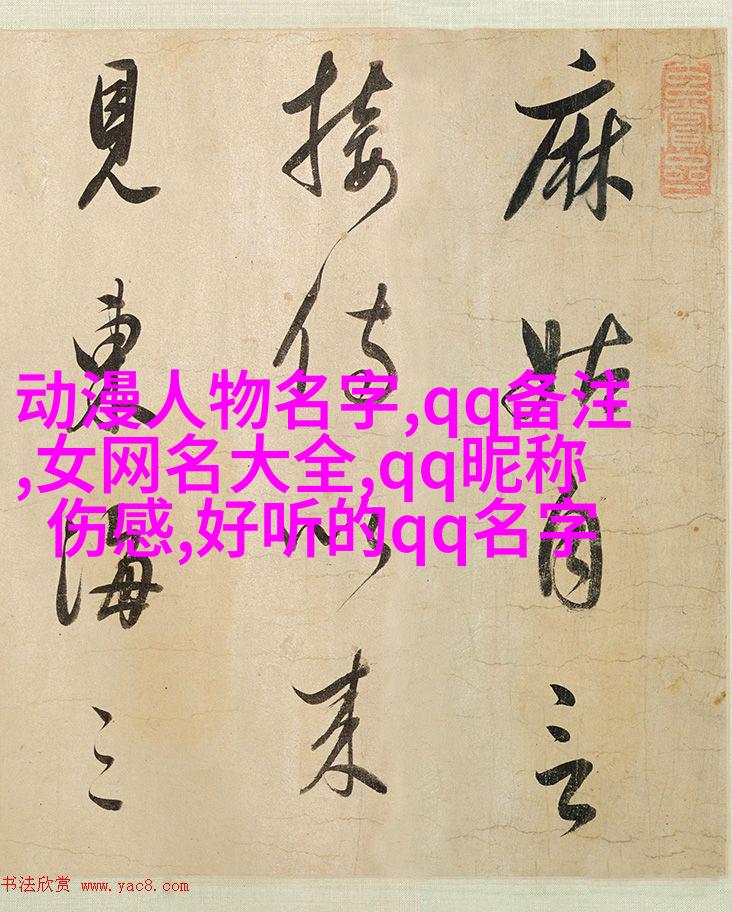 麻姑自言
接侍以来
見東海三
动漫人物名字,qq备注
,女网名大全,qq昵称
伤感,好听的qq名字
书法欣赏 www.yac8.com